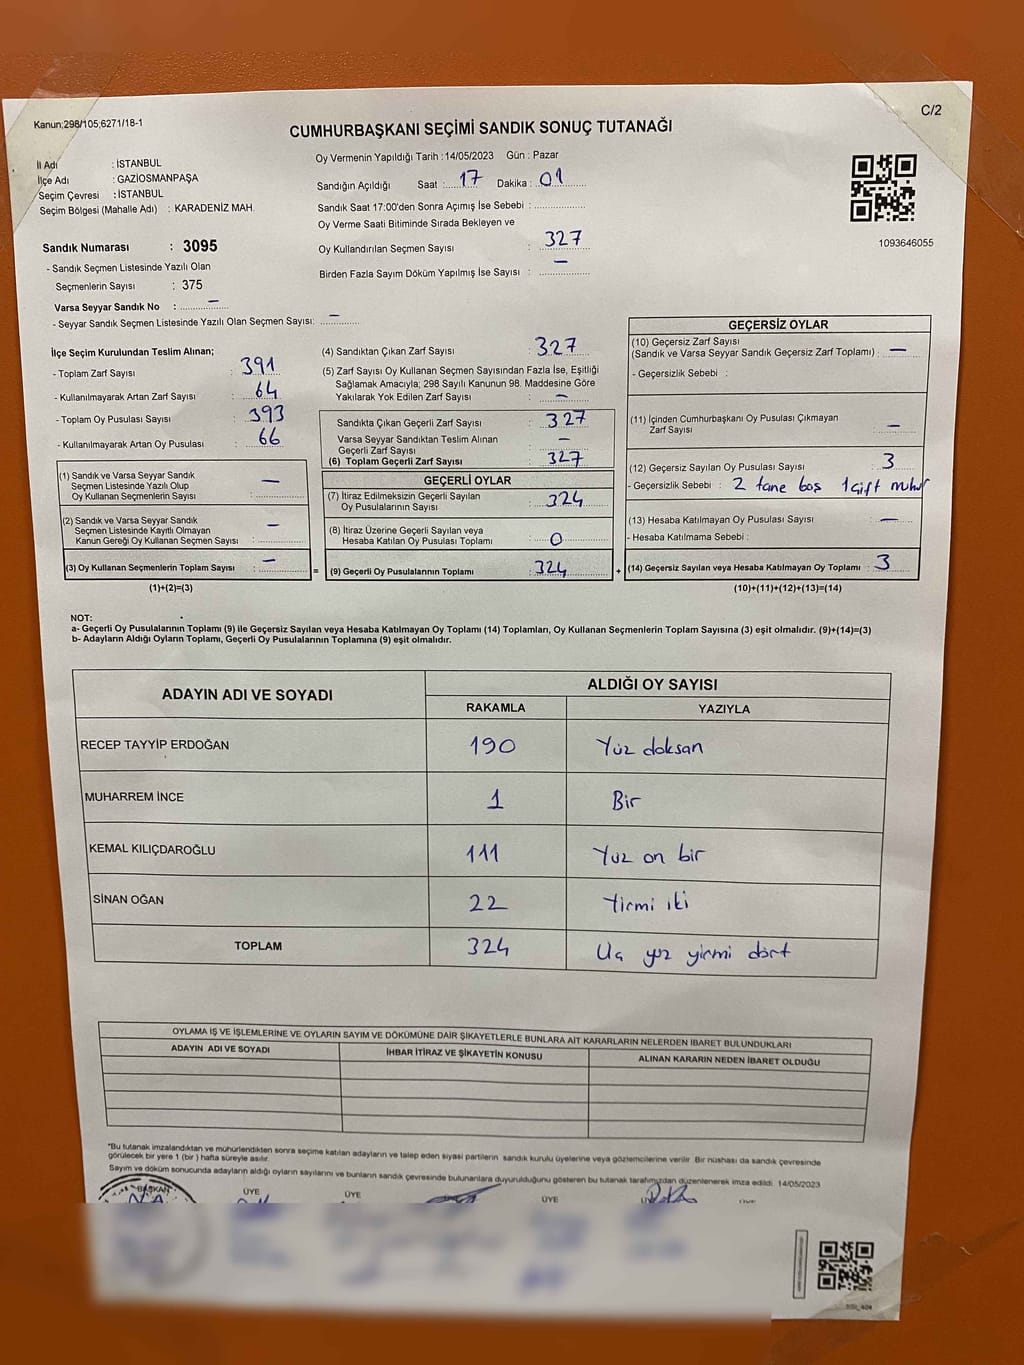 Kanun;298/105;6271/18-1
C/2
CUMHURBAŞKANI SEÇİMİ SANDIK SONUÇ TUTANAĞI
İl Adı : İSTANBUL
İlçe Adı : GAZİOSMANPAŞA
Seçim Çevresi : İSTANBUL
Seçim Bölgesi (Mahalle Adı) : KARADENİZ MAH.
Sandık Numarası : 3095
- Sandık Seçmen Listesinde Yazılı Olan
Seçmenlerin Sayısı : 375
Varsa Seyyar Sandık No : –
- Seyyar Sandık Seçmen Listesinde Yazılı Olan Seçmen Sayısı: –
Oy Vermenin Yapıldığı Tarih :14/05/2023 Gün : Pazar
Sandığın Açıldığı Saat : 17 Dakika : 01
Sandık Saat 17:00'den Sonra Açımış İse Sebebi :
Oy Verme Saati Bitiminde Sırada Bekleyen ve
Oy Kullandırılan Seçmen Sayısı : 327
Birden Fazla Sayım Döküm Yapılmış İse Sayısı : –
1093646055
İlçe Seçim Kurulundan Teslim Alınan;
- Toplam Zarf Sayısı : 391
- Kullanılmayarak Artan Zarf Sayısı : 64
- Toplam Oy Pusulası Sayısı : 393
- Kullanılmayarak Artan Oy Pusulası : 66
(1) Sandık ve Varsa Seyyar Sandık
Seçmen Listesinde Yazılı Olup
Oy Kullanan Seçmenlerin Sayısı : –
(2) Sandık ve Varsa Seyyar Sandık
Seçmen Listesinde Kayıtlı Olmayan
Kanun Gereği Oy Kullanan Seçmen Sayısı : –
(3) Oy Kullanan Seçmenlerin Toplam Sayısı : –
(1)+(2)=(3)
=
(4) Sandıktan Çıkan Zarf Sayısı : 327
(5) Zarf Sayısı Oy Kullanan Seçmen Sayısından Fazla İse, Eşitliği
Sağlamak Amacıyla; 298 Sayılı Kanunun 98. Maddesine Göre
Yakılarak Yok Edilen Zarf Sayısı : –
Sandıkta Çıkan Geçerli Zarf Sayısı : 327
Varsa Seyyar Sandıktan Teslim Alınan
Geçerli Zarf Sayısı : –
(6) Toplam Geçerli Zarf Sayısı : 327
GEÇERLİ OYLAR
(7) İtiraz Edilmeksizin Geçerli Sayılan
Oy Pusulalarının Sayısı : 324
(8) İtiraz Üzerine Geçerli Sayılan veya
Hesaba Katılan Oy Pusulası Toplamı : 0
(9) Geçerli Oy Pusulalarının Toplamı : 324
+
GEÇERSİZ OYLAR
(10) Geçersiz Zarf Sayısı
(Sandık ve Varsa Seyyar Sandık Geçersiz Zarf Toplamı) : –
- Geçersizlik Sebebi :
(11) İçinden Cumhurbaşkanı Oy Pusulası Çıkmayan
Zarf Sayısı : –
(12) Geçersiz Sayılan Oy Pusulası Sayısı : 3
- Geçersizlik Sebebi : 2 tane boş 1 çift mühür
(13) Hesaba Katılmayan Oy Pusulası Sayısı : –
- Hesaba Katılmama Sebebi :
(14) Geçersiz Sayılan veya Hesaba Katılmayan Oy Toplamı : 3
(10)+(11)+(12)+(13)=(14)
NOT:
a- Geçerli Oy Pusulalarının Toplamı (9) ile Geçersiz Sayılan veya Hesaba Katılmayan Oy Toplamı (14) Toplamları, Oy Kullanan Seçmenlerin Toplam Sayısına (3) eşit olmalıdır. (9)+(14)=(3)
b- Adayların Aldığı Oyların Toplamı, Geçerli Oy Pusulalarının Toplamına (9) eşit olmalıdır.
ADAYIN ADI VE SOYADI ALDIĞI OY SAYISI
RAKAMLA YAZIYLA
RECEP TAYYİP ERDOĞAN 190 Yüz doksan
MUHARREM İNCE 1 Bir
KEMAL KILIÇDAROĞLU 111 Yüz on bir
SİNAN OĞAN 22 Yirmi iki
TOPLAM 324 Üç yüz yirmi dört
OYLAMA İŞ VE İŞLEMLERİNE VE OYLARIN SAYIM VE DÖKÜMÜNE DAİR ŞİKAYETLERLE BUNLARA AİT KARARLARIN NELERDEN İBARET BULUNDUKLARI
ADAYIN ADI VE SOYADI İHBAR İTİRAZ VE ŞİKAYETİN KONUSU ALINAN KARARIN NEDEN İBARET OLDUĞU
*Bu tutanak imzalandıktan ve mühürlendikten sonra seçime katılan adayların ve talep eden siyasi partilerin sandık kurulu üyelerine veya gözlemcilerine verilir. Bir nüshası da sandık çevresinde
görülecek bir yere 1 (bir ) hafta süreyle asılır.
Sayım ve döküm sonucunda adayların aldığı oyların sayılarını ve bunların sandık çevresinde bulunanlara duyurulduğunu gösteren bu tutanak tarafımızdan düzenlenerek imza edildi. 14/05/2023
BAŞKAN ÜYE ÜYE ÜYE ÜYE